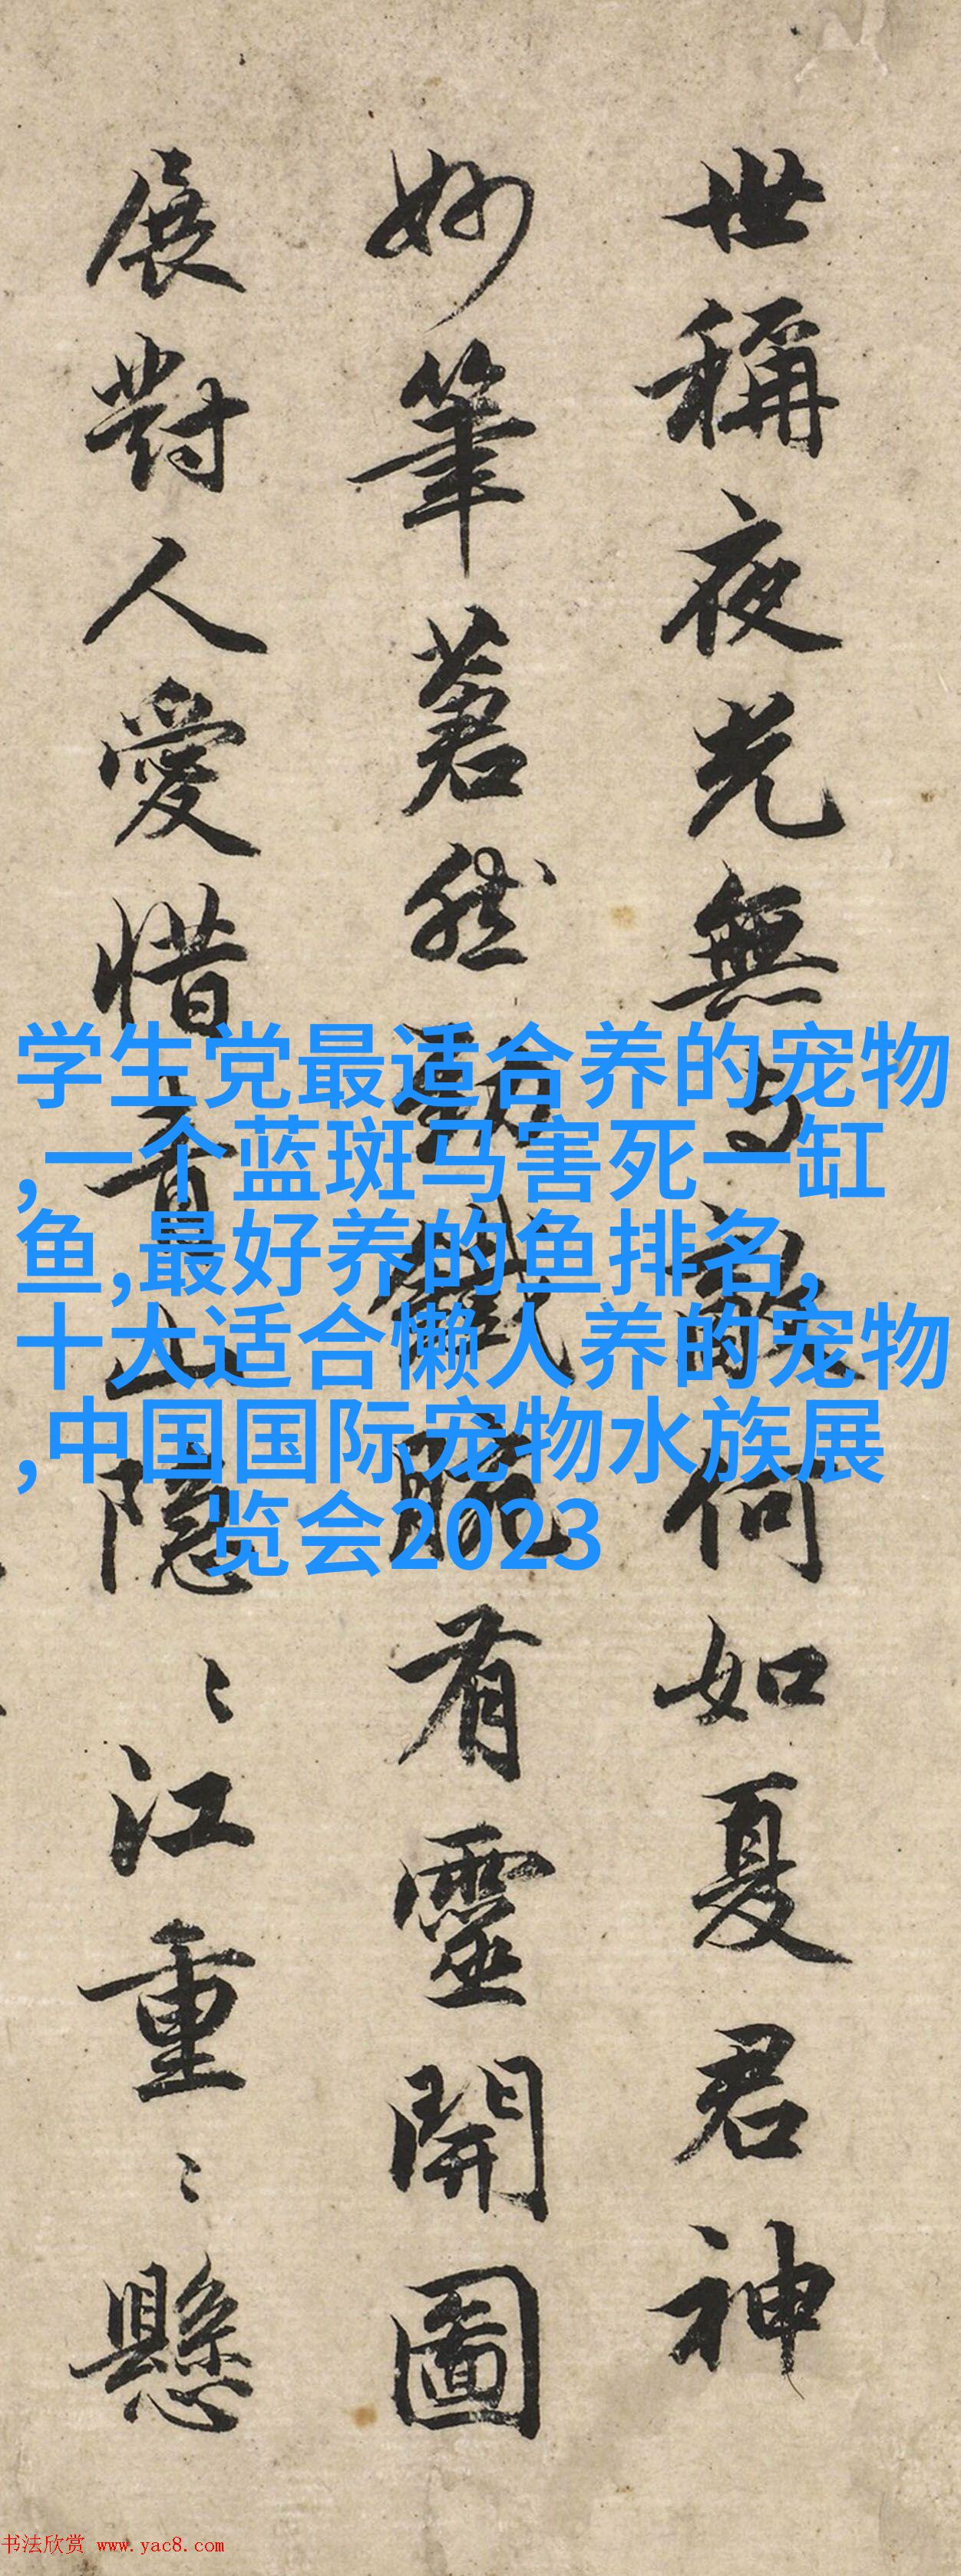 世稱夜光無与敵何如夏君神
妙筆蒼然勁鐵腕有靈開圖
展對人愛惜青山隱〻江重〻懸
学生党最适合养的宠物
,一个蓝斑马害死一缸
鱼,最好养的鱼排名,
十大适合懒人养的宠物
,中国国际宠物水族展
览会2023
书法欣赏 www.yac8.com